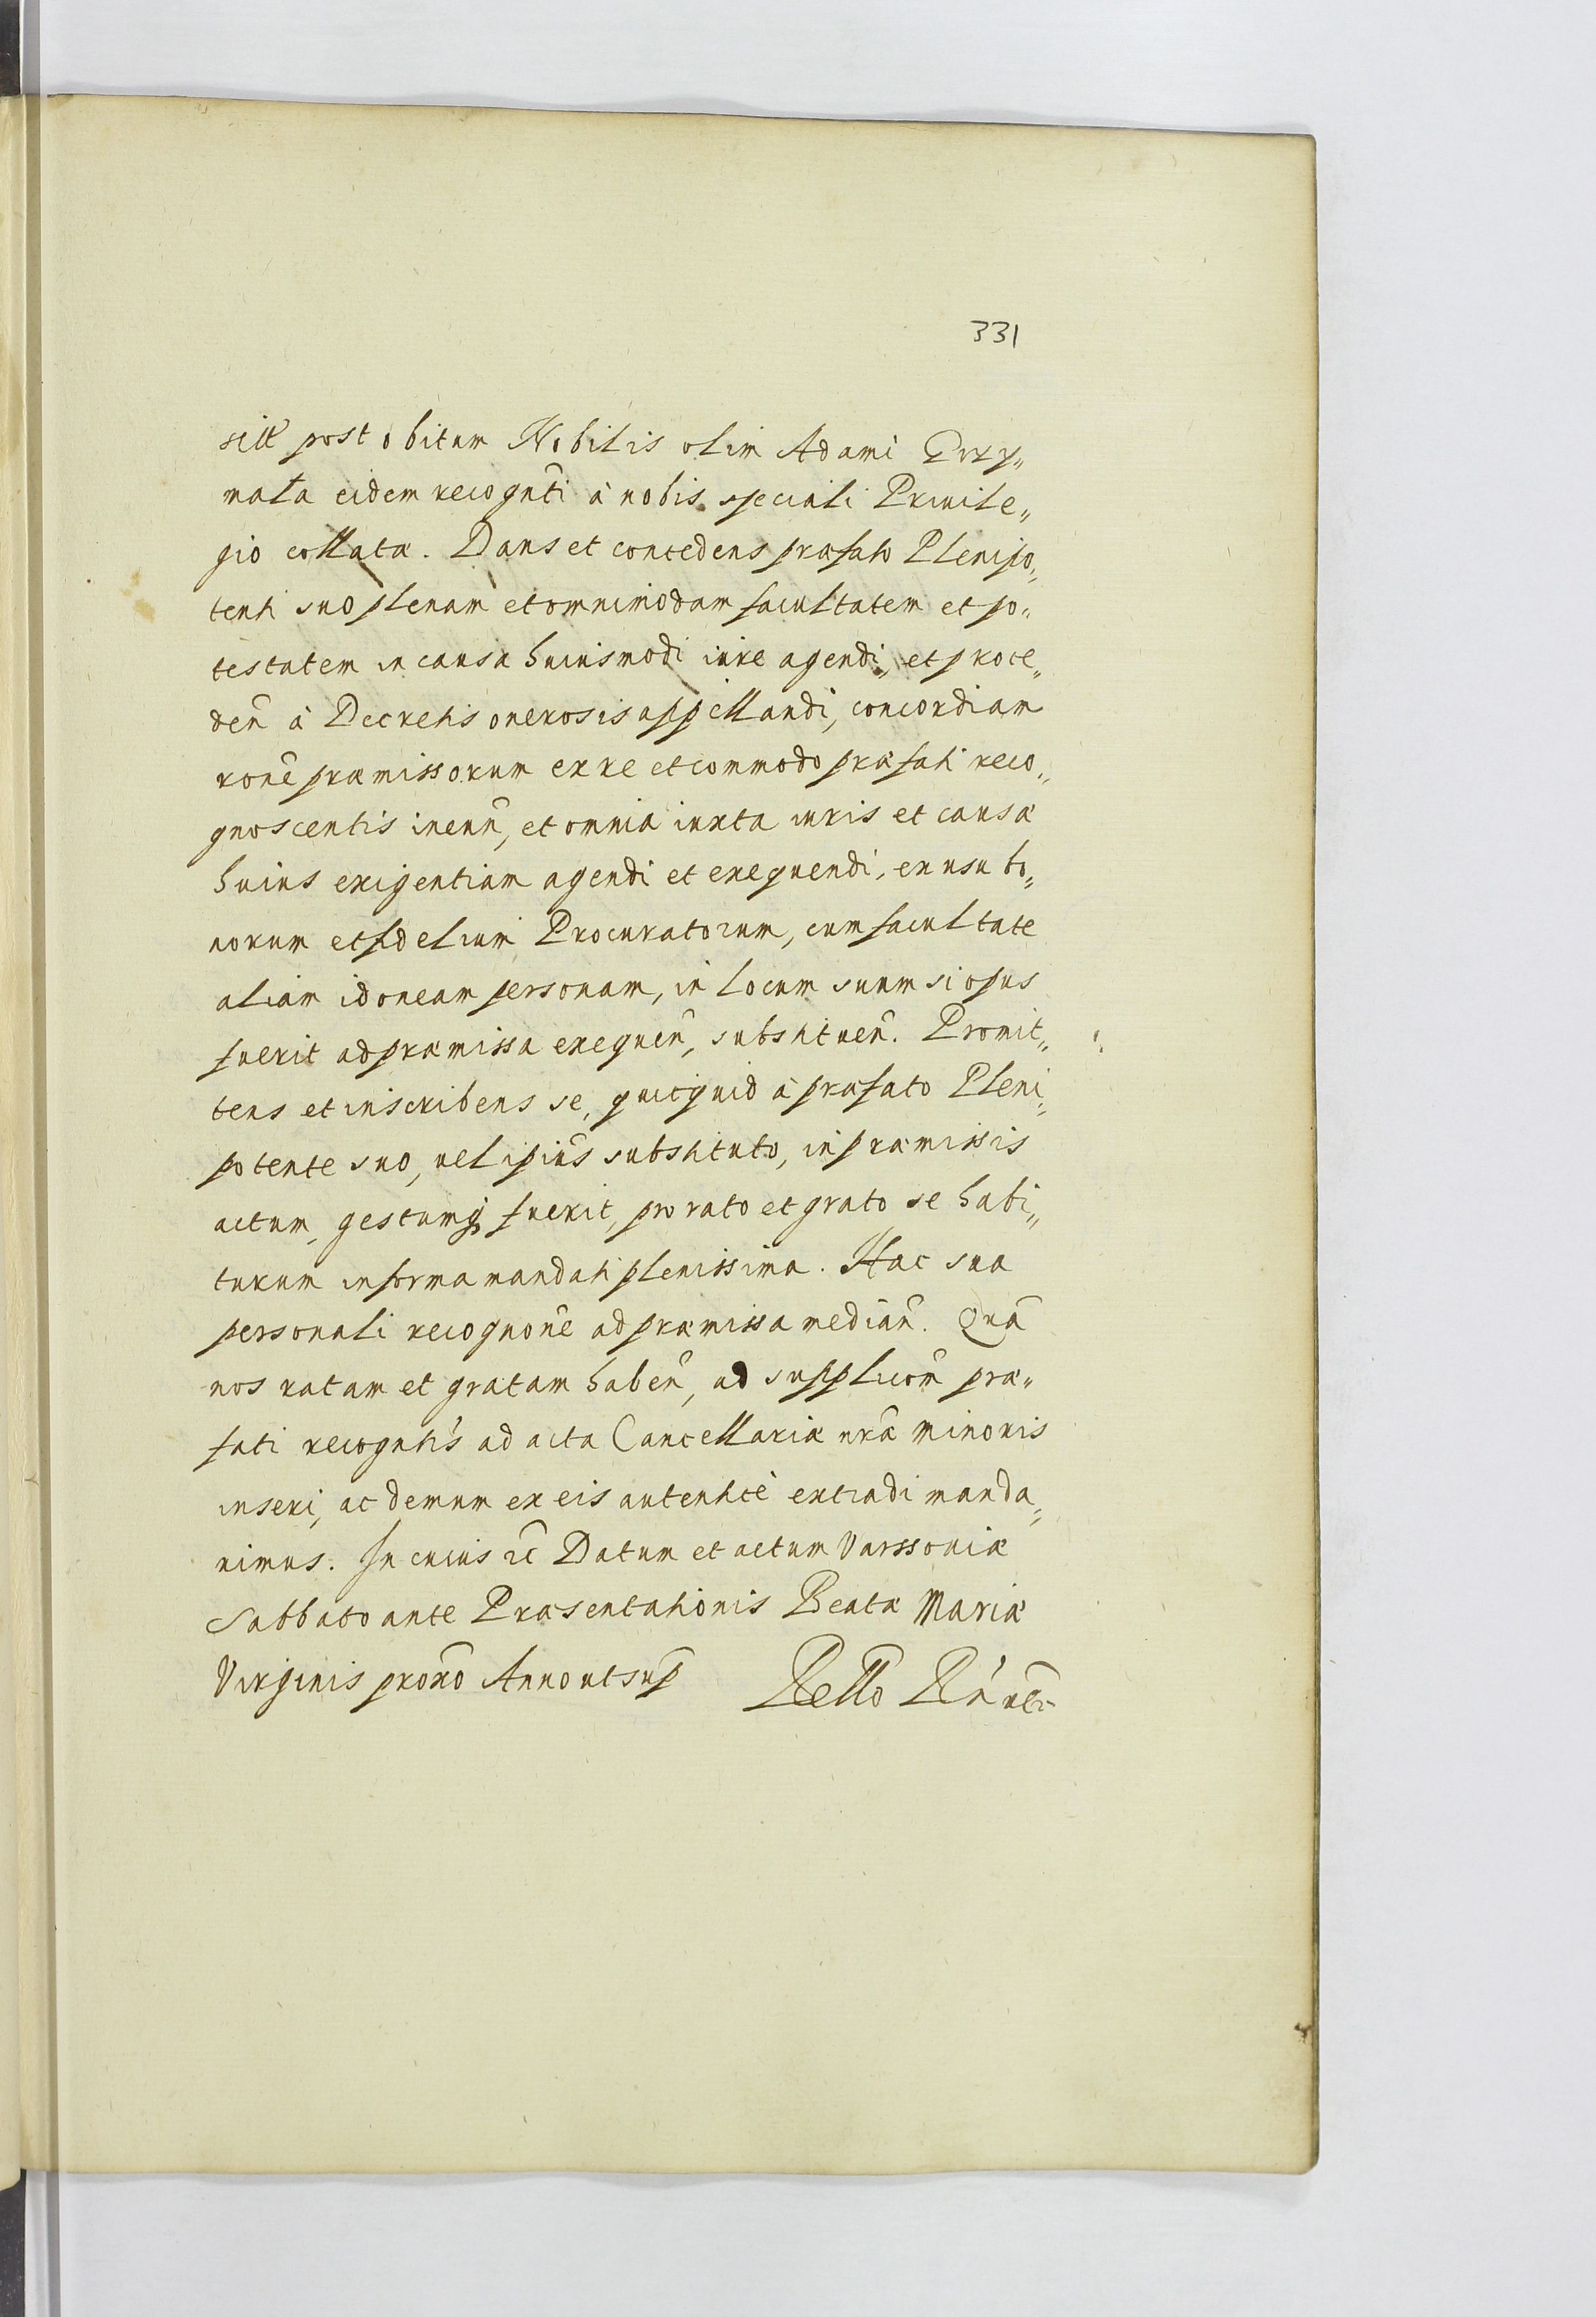 331
sitt post obitum Nobilis olim Adami Grzy„
mała eidem recognti à nobis speciali Priuile„
gio collata. Dans et concedens præfato Plenipo„
tenti suo plenam et omnimodam facultatem et po„
testatem in causa huiusmodi iure agendi, et proce„
den̄ à Decretis onerosis appellandi, concordiam
rōne præmissorum ex re et commodo præfati reco„
gnoscentis ineun̄, et omnia iuxta iuris et causæ
huius exigentiam agendi et exequendi, ex usu bo„
norum et fidelium Procuratorum, cum facultate
aliam idoneam personam, in locum suum si opus
fuerit ad præmissa exequen̄, substituen̄. Promit„
tens et inscribens se, quicquid à præfato Pleni„
potente suo, uel ipiūs substituto, in præmissis
actum, gestumq; fuerit, pro rato et grato se habi„
turum in forma mandati plenissima. Hac sua
personali recognōne ad præmissa mediān. Quā
nos ratam et gratam haben̄, ad supplicōn̄ præ„
fati recogntis ad acta Cancellariæ nrǣ minoris
inseri, ac demum ex eis autenticè extradi manda„
uimus. In cuius rē Datum et actum Varssouiæ
Sabbato ante Præsentationis Beatæ Mariæ
Virginis proxō Anno ut sup̄